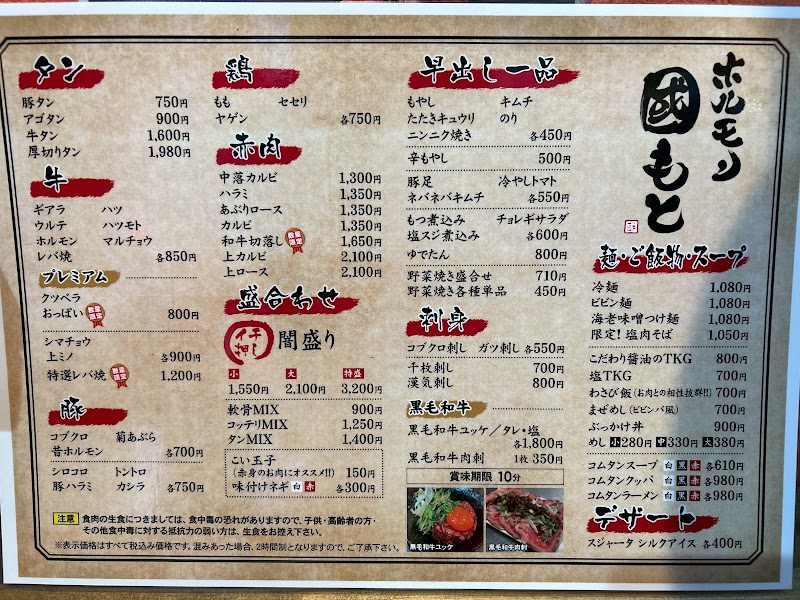 タン
豚タン 750円
アゴタン 900円
牛タン 1,600円
厚切りタン 1,980円
牛
ギアラ ハツ
ウルテ ハツモト
ホルモン マルチョウ
レバ焼 各850円
プレミアム
クツベラ
おっぱい 数量限定 800円
シマチョウ
上ミノ 各900円
特選レバ焼 数量限定 1,200円
豚
コブクロ 菊あぶら
昔ホルモン 各700円
シロコロ トントロ
豚ハラミ カシラ 各750円
鶏
もも セセリ
ヤゲン 各750円
赤肉
中落カルビ 1,300円
ハラミ 1,350円
あぶりロース 1,350円
カルビ 1,350円
和牛切落し 数量限定 1,650円
上カルビ 2,100円
上ロース 2,100円
盛合わせ
イチ押し 闇盛り
小 大 特盛
1,550円 2,100円 3,200円
軟骨MIX 900円
コッテリMIX 1,250円
タンMIX 1,400円
こい玉子
(赤身のお肉にオススメ!!) 150円
味付けネギ 白 赤 各300円
早出し一品
もやし キムチ
たたきキュウリ のり
ニンニク焼き 各450円
辛もやし 500円
豚足 冷やしトマト
ネバネバキムチ 各550円
もつ煮込み チョレギサラダ
塩スジ煮込み 各600円
ゆでたん 800円
野菜焼き盛合せ 710円
野菜焼き各種単品 450円
刺身
コブクロ刺し ガツ刺し 各550円
千枚刺し 700円
漢気刺し 800円
黒毛和牛
黒毛和牛ユッケ／タレ・塩
各1,800円
黒毛和牛肉刺 1枚 350円
賞味期限 10分
黒毛和牛ユッケ 黒毛和牛肉刺
ホルモン
國もと
麺・ご飯物・スープ
冷麺 1,080円
ビビン麺 1,080円
海老味噌つけ麺 1,080円
限定! 塩肉そば 1,050円
こだわり醤油のTKG 800円
塩TKG 700円
わさび飯(お肉との相性抜群!!) 700円
まぜめし(ビビンバ風) 700円
ぶっかけ丼 900円
めし 小280円 中330円 大380円
コムタンスープ 白 黒 赤 各610円
コムタンクッパ 白 黒 赤 各980円
コムタンラーメン 白 黒 赤 各980円
デザート
スジャータ シルクアイス 各400円
注意 食肉の生食につきましては、食中毒の恐れがありますので、子供・高齢者の方・
その他食中毒に対する抵抗力の弱い方は、生食をお控え下さい。
※表示価格はすべて税込み価格です。混みあった場合、2時間制となりますので、ご了承下さい。